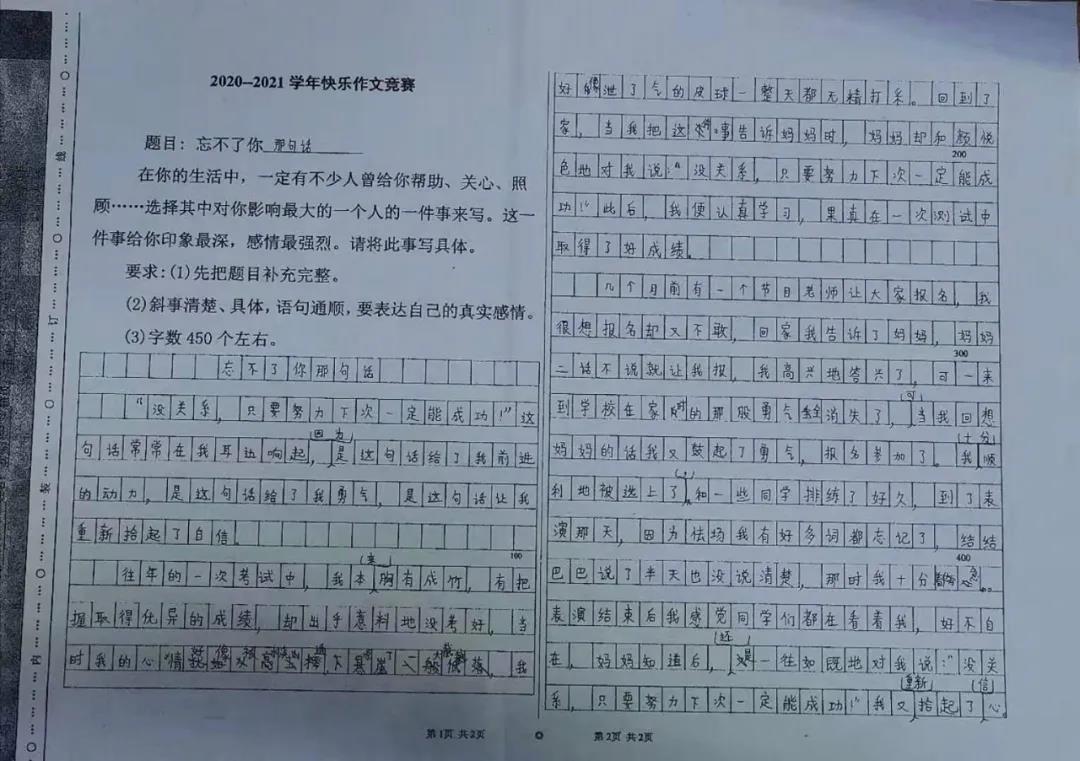 2020--2021 学年快乐作文竞赛
题目：忘不了你那句话
在你的生活中，一定有不少人曾给你帮助、关心、照
顾……选择其中对你影响最大的一个人的一件事来写。这一
件事给你印象最深，感情最强烈。请将此事写具体。
要求：(1)先把题目补充完整。
(2)斜事清楚、具体，语句通顺，要表达自己的真实感情。
(3)字数 450 个左右。
忘不了你那句话
“没关系，只要努力下次一定能成功！”这
句话常常在我耳边响起，因为是这句话给了我前进
的动力，是这句话给了我勇气，是这句话让我
重新拾起了自信。
100
往年的一次考试中，我本来胸有成竹，有把
握取得优异的成绩，却出手意料地没考好，当
时我的心情好像从高空下悬崖了一般，我
第1页 共2页
好像泄了气的皮球一整天都无精打采。回到了
家，当我把这事告诉妈妈时，妈妈却和颜悦
200
色地对我说：“没关系，只要努力下次一定能成
功！”此后，我便认真学习，果真在一次测试中
取得了好成绩。
几个月前有一个节目老师让大家报名，我
很想报名却又不敢，回家我告诉了妈妈，妈妈
300
二话不说就让我报，我高兴地答兴了，可一来
到学校在家时的那股勇气全消失了，可当我回想
妈妈的话我又鼓起了勇气，报名参加了。我十分顺
利地被选上了。和一些同学排练了好久，到了表
演那天，因为怯场我有好多词都忘记了，结结
400
巴巴说了半天也没说清楚，那时我十分着急。
表演结束后我感觉同学们都在看着我，好不自
在，妈妈知道后，还是一往如既地对我说：“没关
系，只要努力下次一定能成功！”我又重新拾起了信心。
第2页 共2页